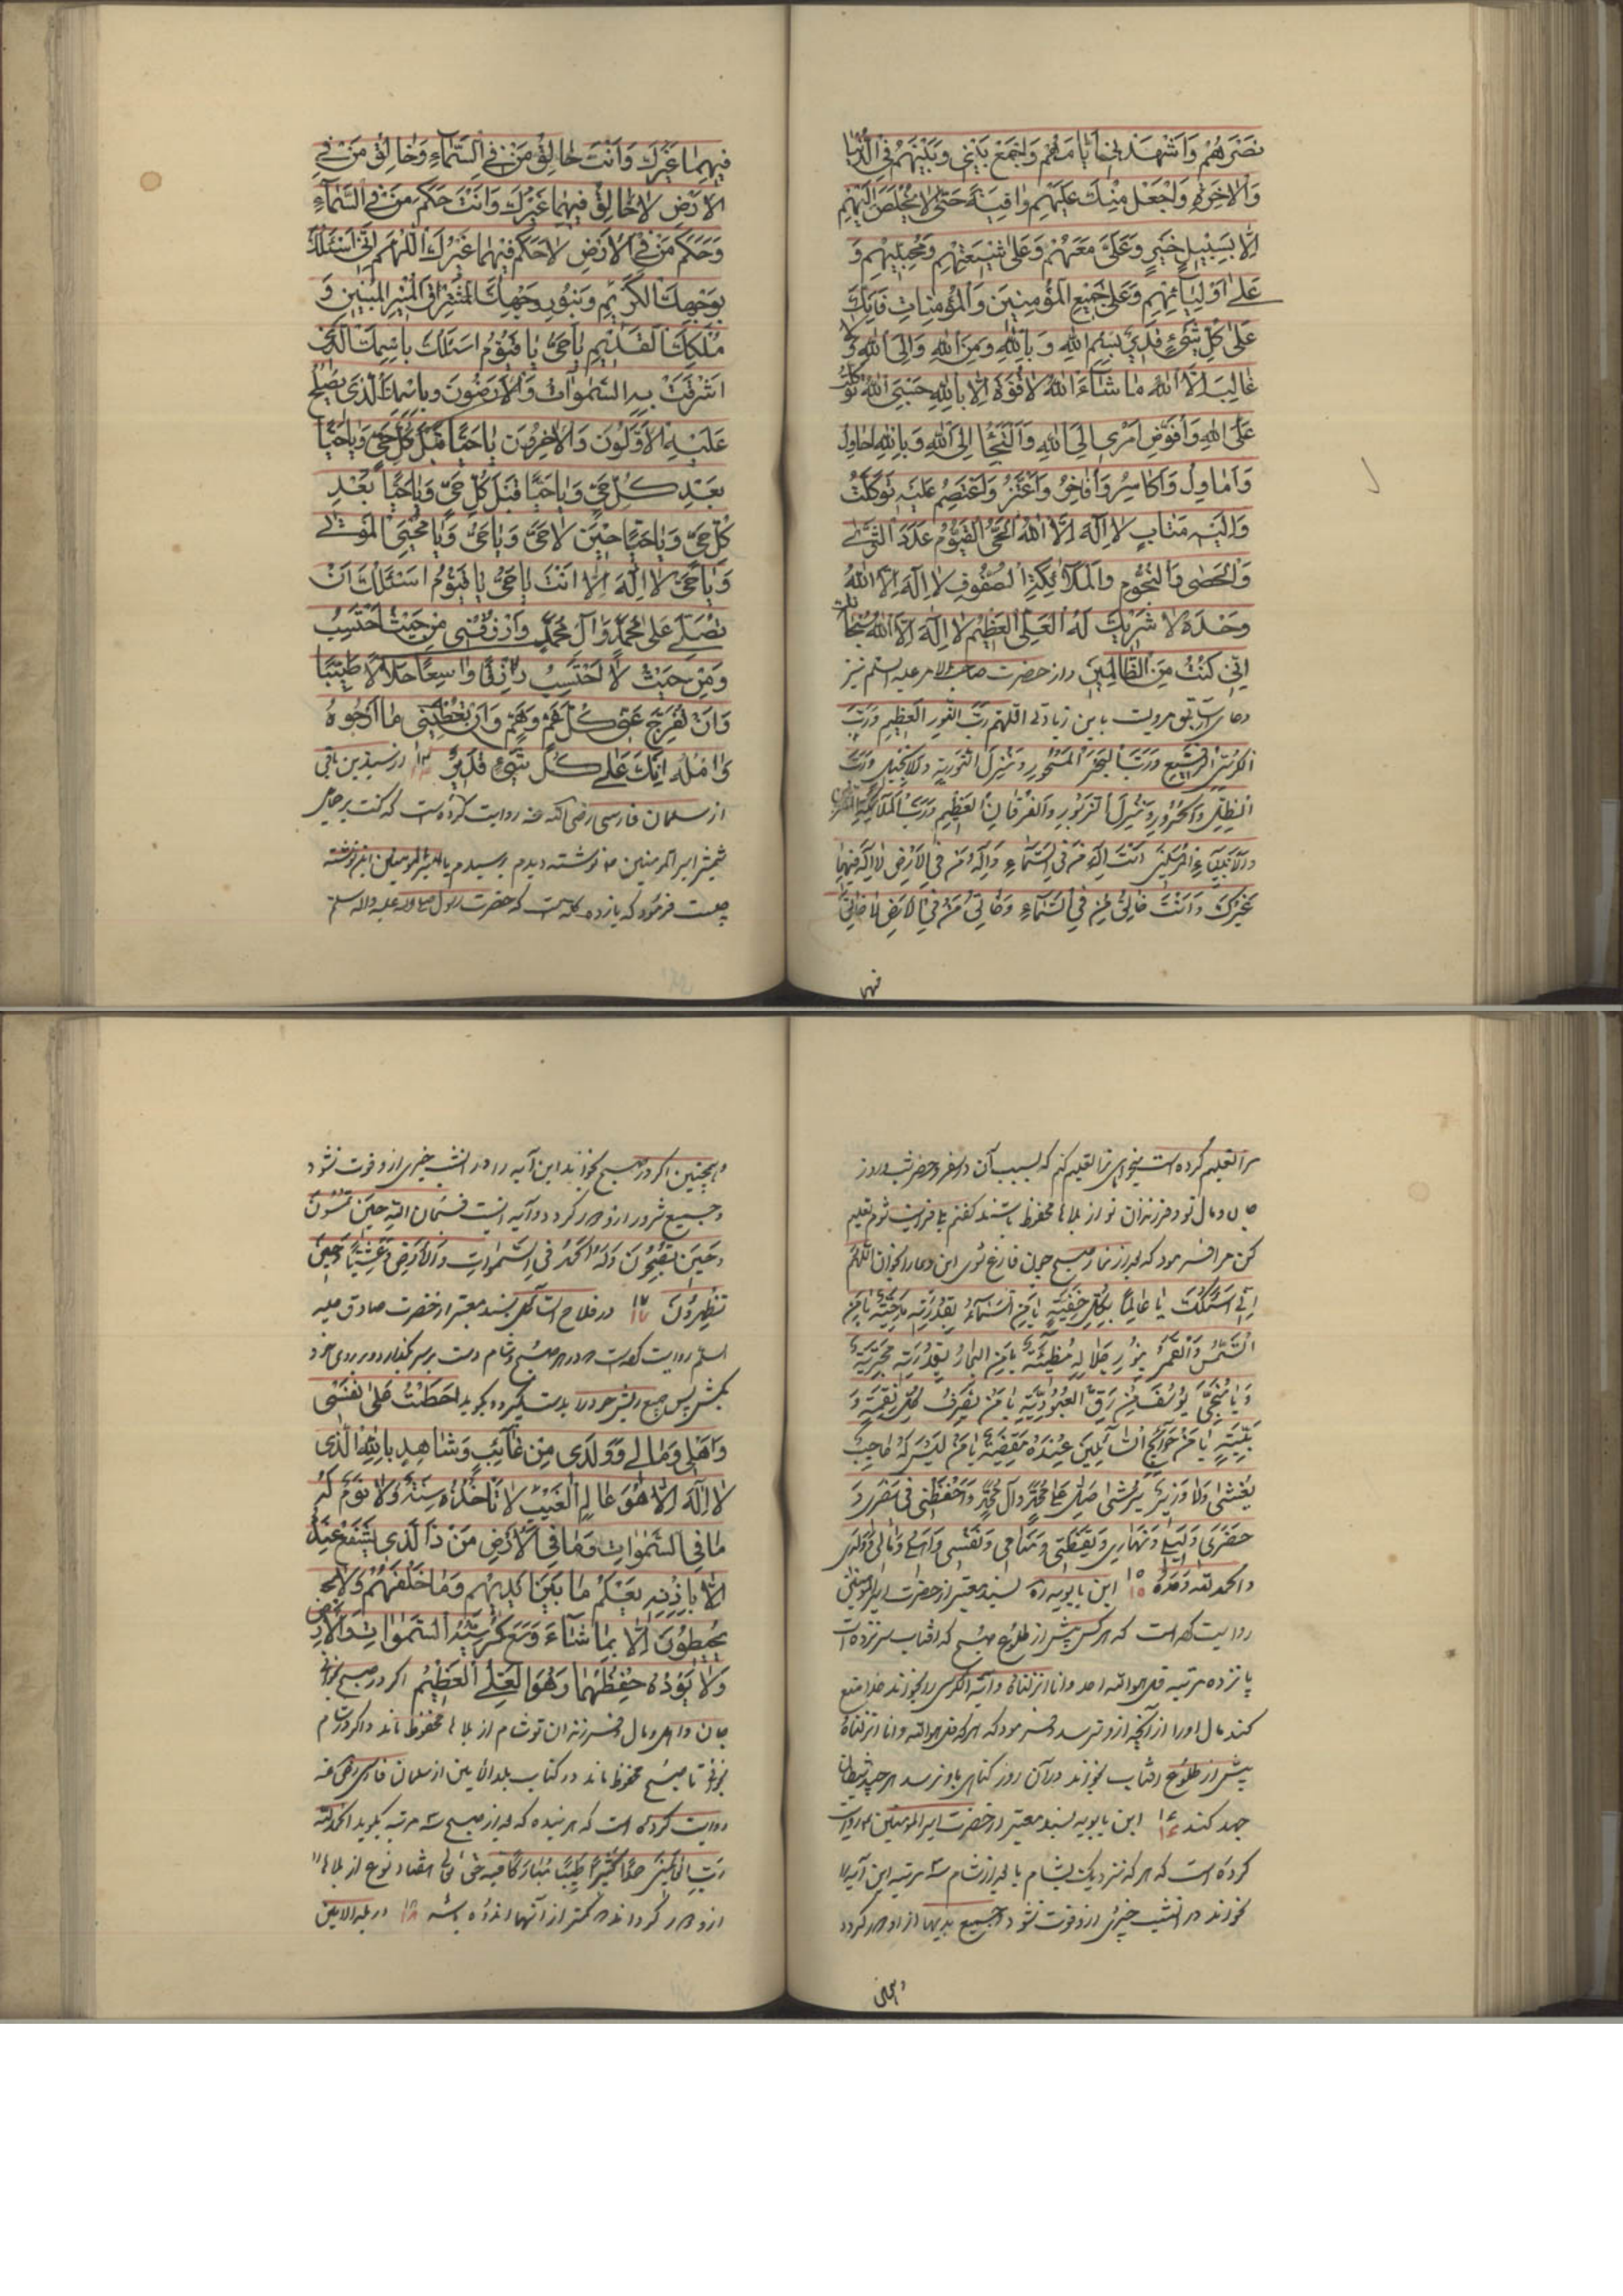 نَصَرَهُمْ وَاَشْهَدَنِي اَيّامَهُمْ وَاجْمَعْ بَيْنِي وَبَيْنَهُمْ فِي الدُّنْيا
وَالْاخِرَةِ وَاجْعَلْ مِنْكَ عَلَيْهِمْ واقِيَةً حَتّى لا يُخْلَصَ اِلَيْهِمْ
اِلّا بِسَبِيلِ خَيْرٍ وَعَلَيَّ مَعَهُمْ وَعَلى شِيعَتِهِمْ وَمُحِبّيهِمْ وَ
عَلى اَوْلِيائِهِمْ وَعَلى جَمِيعِ الْمُؤْمِنِينَ وَالْمُؤْمِناتِ فَاِنَّكَ
عَلى كُلِّ شَيْءٍ قَدِيرٌ بِسْمِ اللهِ وَبِاللهِ وَمِنَ اللهِ وَاِلَى اللهِ وَلا
غالِبَ اِلَّا اللهُ ما شاءَ اللهُ لا قُوَّةَ اِلّا بِاللهِ حَسْبِيَ اللهُ تَوَكَّلْتُ
عَلَى اللهِ وَاُفَوِّضُ اَمْرِي اِلَى اللهِ وَاَلْتَجِأُ اِلَى اللهِ وَبِاللهِ اُحاوِلُ
وَاُصاوِلُ وَاُكاثِرُ وَاُفاخِرُ وَاَعْتَزُّ وَاَعْتَصِمُ عَلَيْهِ تَوَكَّلْتُ
وَاِلَيْهِ مَتابِ لا اِلهَ اِلَّا اللهُ الْحَيُّ الْقَيُّومُ عَدَدَ الثَّرى
وَالْحَصى وَالنُّجُومِ وَالْمَلائِكَةِ الصُّفُوفِ لا اِلهَ اِلَّا اللهُ
وَحْدَهُ لا شَرِيكَ لَهُ الْعَلِيُّ الْعَظِيمُ لا اِلهَ اِلَّا اللهُ سُبْحانَكَ
اِنّي كُنْتُ مِنَ الظّالِمِينَ واز حضرت صاحب الامر عليه السلم نيز
دعاى سابق مرويست باين زيادتى اللهم رَبَّ النُّورِ الْعَظِيمِ وَرَبَّ
الكُرْسِيِّ الرَّفِيعِ وَرَبَّ الْبَحْرِ الْمَسْجُورِ وَمُنْزِلَ التَّوْرِيةِ وَالْاِنْجِيلِ وَرَبَّ
الظِّلِّ وَالْحَرُورِ وَمُنْزِلَ الزَّبُورِ وَالْفُرْقانِ الْعَظِيمِ وَرَبَّ الْمَلائِكَةِ الْمُقَرَّبِينَ
وَالْاَنْبِياءِ الْمُرْسَلِينَ اَنْتَ اِلهُ مَنْ فِي السَّماءِ وَاِلهُ مَنْ فِي الْاَرْضِ لا اِلهَ فِيهِما
غَيْرُكَ وَاَنْتَ خالِقُ مَنْ فِي السَّماءِ وَخالِقُ مَنْ فِي الْاَرْضِ لا خالِقَ
فيهما
فِيهِما غَيْرُكَ وَاَنْتَ خالِقُ مَنْ فِي السَّماءِ وَخالِقُ مَنْ فِي
الْاَرْضِ لا خالِقَ فِيهِما غَيْرُكَ وَاَنْتَ حَكَمُ مَنْ فِي السَّماءِ
وَحَكَمُ مَنْ فِي الْاَرْضِ لا حَكَمَ فِيهِما غَيْرُكَ اَللّهُمَّ اِنّي اَسْئَلُكَ
بِوَجْهِكَ الْكَرِيمِ وَبِنُورِ وَجْهِكَ الْمُشْرِقِ الْمُنِيرِ الْمُبِينِ وَ
مُلْكِكَ الْقَدِيمِ يا حَيُّ يا قَيُّومُ اَسْئَلُكَ بِاسْمِكَ الَّذِي
اَشْرَقَتْ بِهِ السَّمواتُ وَالْاَرَضُونَ وَبِاسْمِكَ الَّذِي يَصْلُحُ
عَلَيْهِ الْاَوَّلُونَ وَالْاخِرُونَ يا حَيًّا قَبْلَ كُلِّ حَيٍّ وَيا حَيًّا
بَعْدَ كُلِّ حَيٍّ وَيا حَيًّا قَبْلَ كُلِّ حَيٍّ وَيا حَيًّا بَعْدَ
كُلِّ حَيٍّ وَيا حَيًّا حِينَ لا حَيَّ وَيا حَيُّ وَيا مُحْيِيَ الْمَوْتى
وَيا حَيُّ لا اِلهَ اِلّا اَنْتَ يا حَيُّ يا قَيُّومُ اَسْئَلُكَ اَنْ
تُصَلِّيَ عَلى مُحَمَّدٍ وَآلِ مُحَمَّدٍ وَارْزُقْنِي مِنْ حَيْثُ اَحْتَسِبُ
وَمِنْ حَيْثُ لا اَحْتَسِبُ رِزْقًا واسِعًا حَلالًا طَيِّبًا
وَاَنْ تُفَرِّجَ عَنّي كُلَّ غَمٍّ وَهَمٍّ وَاَنْ تُعْطِيَنِي ما اَرْجُوهُ
وَآمُلُهُ اِنَّكَ عَلى كُلِّ شَيْءٍ قَدِيرٌ ١٤
از سلمان فارسى رضى الله عنه روايت كرده است كه گفت بر حمايل
شمشير امير المؤمنين ع نوشته ديدم پرسيدم يا امير المؤمنين اين نوشته
چيست فرمود كه يازده كلمه است كه حضرت رسول صلى الله عليه واله وسلم
مرا تعليم كرده است ميخواهى ترا تعليم كنم كه بسبب آن در سفر و حضر و شب و روز
جان و مال تو و فرزندان تو از بلاها محفوظ باشند گفتم
كن مرا فرمود كه بعد از نماز صبح چون فارغ شوى اين دعا را بخوان اللّهُمَّ
اِنّي اَسْئَلُكَ يا عالِمًا بِكُلِّ خَفِيَّةٍ يا مَنِ السَّماءُ بِقُدْرَتِهِ مَدْحِيَّةٌ يا مَنِ
الشَّمْسُ وَالْقَمَرُ بِنُورِ جَلالِهِ مُضِيئَةٌ يا مَنِ الْبِحارُ بِقُدْرَتِهِ مَجْرِيَّةٌ
وَيا مُنْجِيَ يُوسُفَ مِنْ رِقِّ الْعُبُودِيَّةِ يا مَنْ يَصْرِفُ كُلَّ نِقْمَةٍ وَ
بَلِيَّةٍ يا مَنْ حَوائِجُ السّائِلِينَ عِنْدَهُ مَقْضِيَّةٌ يا مَنْ لَيْسَ لَهُ حاجِبٌ
يُغْشى وَلا وَزِيرٌ يُرْشى صَلِّ عَلى مُحَمَّدٍ وَآلِ مُحَمَّدٍ وَاحْفَظْنِي فِي سَفَرِي وَ
حَضَرِي وَلَيْلِي وَنَهارِي وَيَقْظَتِي وَمَنامِي وَنَفْسِي وَاَهْلِي وَمالِي وَوَلَدِي
والحمد لله وحده ١٥ ابن بابويه ره بسند معتبر از حضرت امير المؤمنين
روايت كرده است كه هر كس پيش از طلوع صبح كه آفتاب سر نزده است
يازده مرتبه قل هو الله احد وانا انزلناه وآية الكرسى را بخواند خدا منع
كند مال او را از آنچه از او ترسد و فرمود كه هر كه قل هو الله وانا انزلناه
پيش از طلوع آفتاب بخواند در آن روز گناهى باو نرسد هر چند شيطان
جهد كند ١٦ ابن بابويه بسند معتبر از حضرت امير المؤمنين ع روايت
كرده است كه هر كه نزديك بشام يا بعد از شام سه مرتبه اين آيه را
بخواند در آنشب خيرى ازو فوت نشود و جميع بديها از او دور گردد
وهمچنين
وهمچنين اگر در صبح بخواند اين آيه را در آنشب خيرى ازو فوت نشود
و جميع شرور ازو دور گردد و آيه اينست فَسُبْحانَ اللهِ حِينَ تُمْسُونَ
وَحِينَ تُصْبِحُونَ وَلَهُ الْحَمْدُ فِي السَّمواتِ وَالْاَرْضِ وَعَشِيًّا وَحِينَ
تُظْهِرُونَ ١٧ در فلاح السائل بسند معتبر از حضرت صادق عليه
السلم روايت كرده است كه در هر صبح و شام دست بر سر بگذار و بر روى خود
بكش پس جميع ريش خود را بدست بگير و بگو احَطْتُ عَلى نَفْسِي
وَاَهْلِي وَمالِي وَوَلَدِي مِنْ غائِبٍ وَشاهِدٍ بِاللهِ الَّذِي
لا اِلهَ اِلّا هُوَ عالِمُ الْغَيْبِ لا تَأْخُذُهُ سِنَةٌ وَلا نَوْمٌ لَهُ
ما فِي السَّمواتِ وَما فِي الْاَرْضِ مَنْ ذَا الَّذِي يَشْفَعُ عِنْدَهُ
اِلّا بِاِذْنِهِ يَعْلَمُ ما بَيْنَ اَيْدِيهِمْ وَما خَلْفَهُمْ وَلا
يُحِيطُونَ اِلّا بِما شاءَ وَسِعَ كُرْسِيُّهُ السَّمواتِ وَالْاَرْضَ
وَلا يَؤُدُهُ حِفْظُهُما وَهُوَ الْعَلِيُّ الْعَظِيمُ اگر در صبح بخوانى
جان و اهل و مال و فرزندان تو تا شام از بلاها محفوظ ماند و اگر در شام
بخوانى تا صبح محفوظ ماند در كتاب بلد الامين از سلمان فارسى رضى عنه
روايت كرده است كه هر بنده كه بعد از صبح سه مرتبه بگويد الحمد لله
رَبِّ الْعالَمِينَ حَمْدًا كَثِيرًا طَيِّبًا مُبارَكًا فِيهِ حق تعالى هفتاد نوع از بلاها را
ازو دور گرداند كه كمتر از آنها اندوه باشد ١٨ در بلد الامين